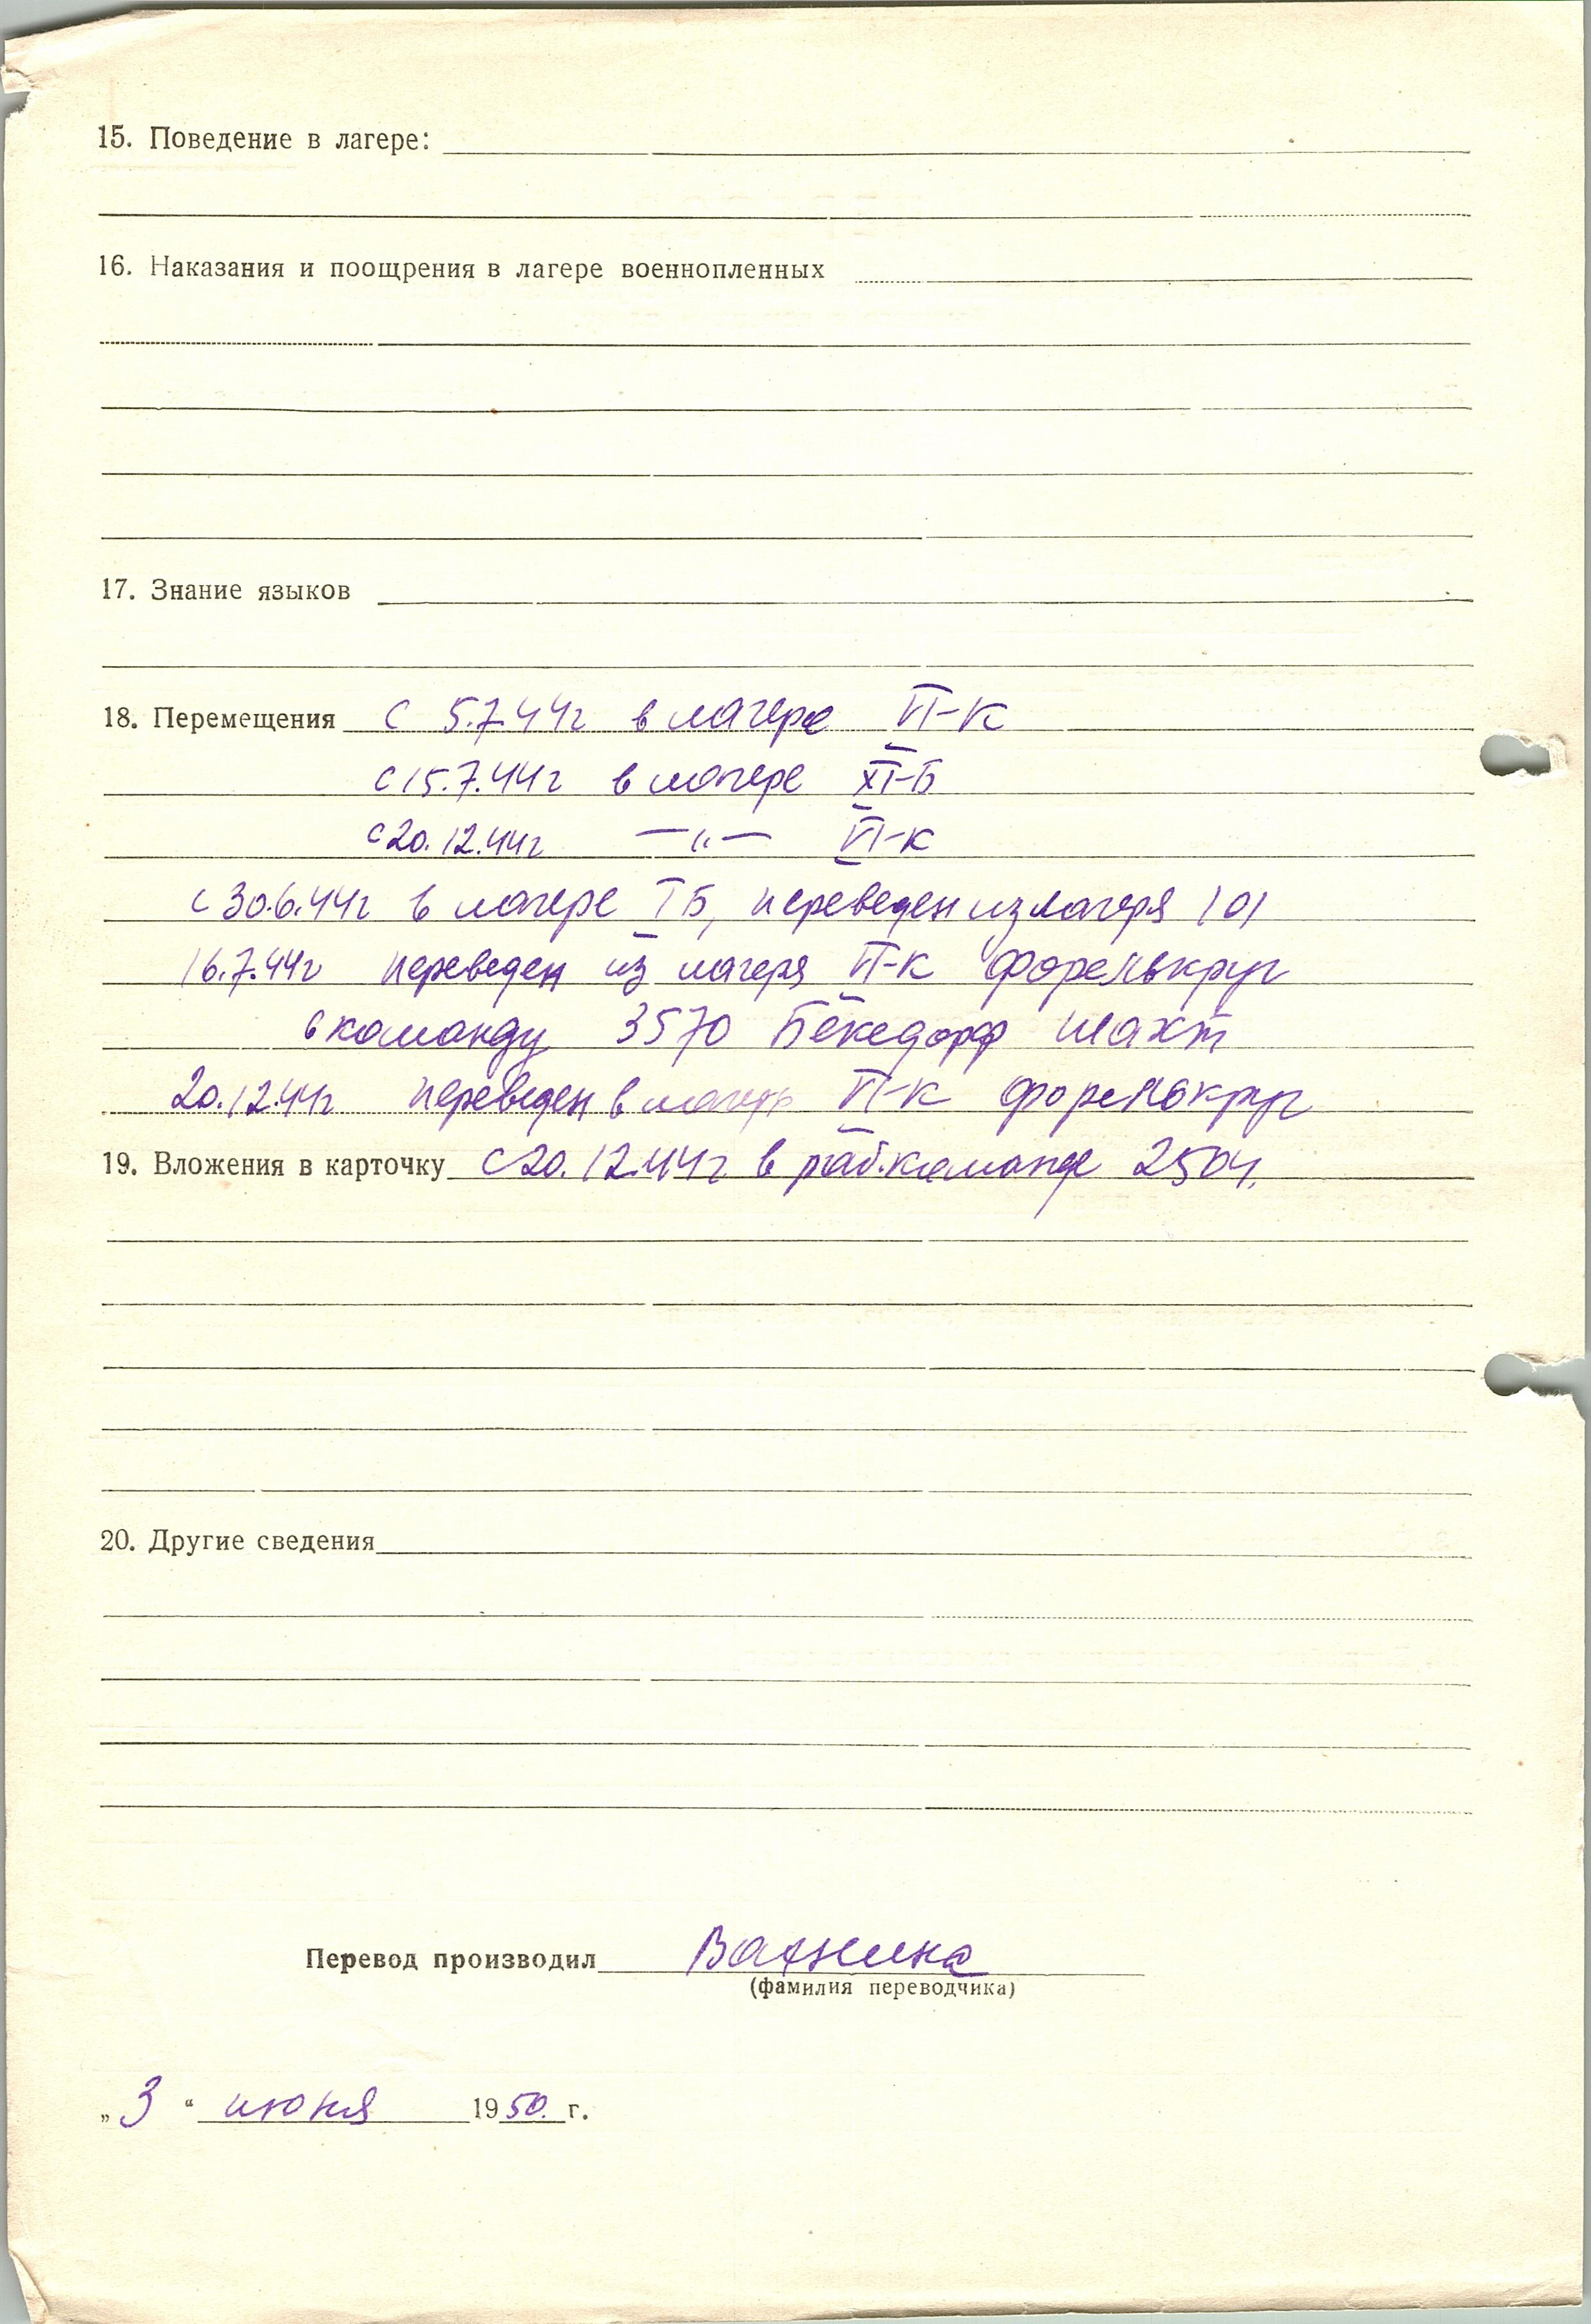 15. Поведение в лагере:
16. Наказания и поощрения в лагере военнопленных
17. Знание языков
18. Перемещения с 5.7.44г в лагере VI-К
с 15.7.44г в лагере XI-Б
с 20.12.44г —"— VI-К
с 30.6.44г в лагере I Б, переведен из лагеря 101
16.7.44г переведен из лагеря VI-К форелькруг
в команду 3570 Бекедорф шахт
20.12.44г переведен в лагерь VI-К форелькруг
19. Вложения в карточку с 20.12.44г в раб.команде 2504.
20. Другие сведения
Перевод производил
(фамилия переводчика)
„3“ июня 1950. г.